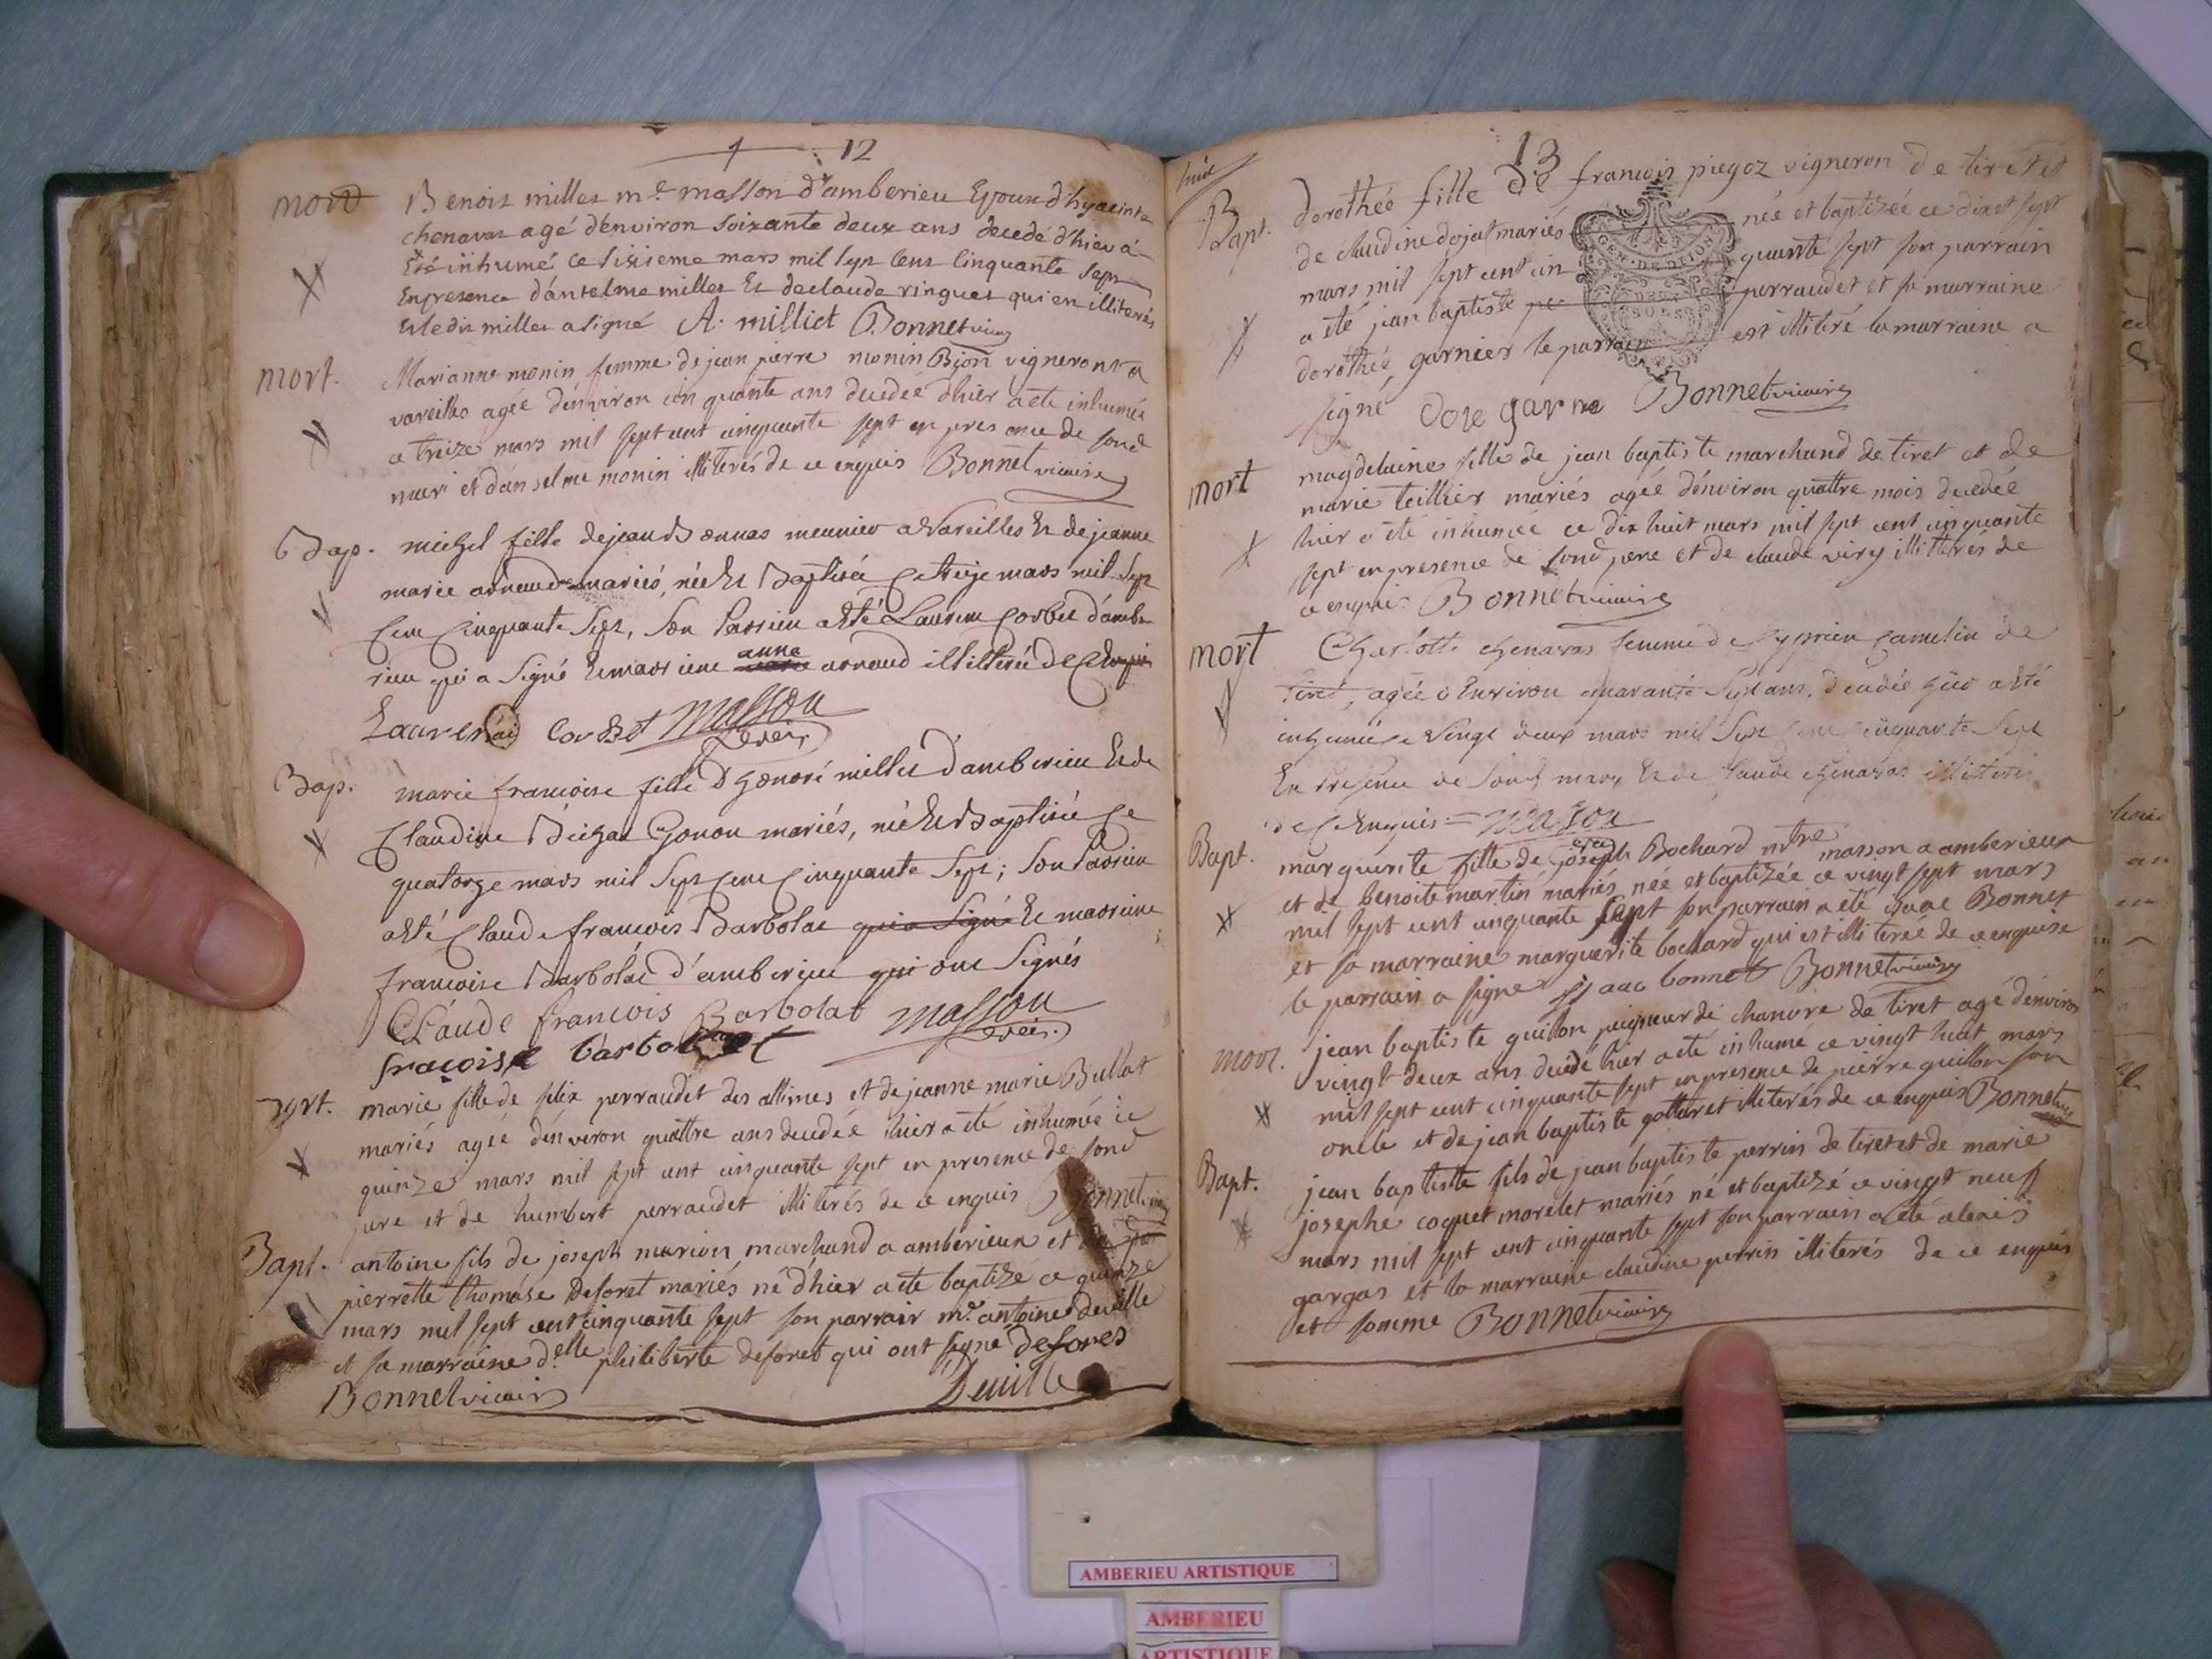 12
mort Benoit milliet me masson d'amberieu Epoux d'hyacinte
chenavas agé d'environ soixante deux ans decedé d'hier á
Eté inhumé ce sixieme mars mil sept cent cinquante sept
En presence d'antelme milliet Et de claude ringuet qui en illiterés
Et ledit milliet a signé A. milliet Bonnet vicaire
mort. Marianne monin femme de jean pierre monin Bjon vigneron a
vareilles agée d'environ cinquante ans decedée d'hier a ete inhumée
ce treize mars mil sept cent cinquante sept en presence de son d
mari et d'anselme monin illiterés de ce enquis Bonnet vicaire
Bap. michel fille de jean Bonnas meunier a Vareilles Et de jeanne
marie arnaud mariés, née Et Baptisée ce treize mars mil sept
cent cinquante sept, son Parrein a Eté Laurent corbet d'ambe
rieu qui a signé Et marreine anne arnaud illiterée de ce Enquis
Laurent corbet masson
curé
Bap. marie francoise fille d'honoré milliet d'amberieu Et de
Claudine Bichat Gonon mariés, née Et Baptisée ce
quatorze mars mil sept cent cinquante sept; son Parrein
a Eté Claude francois Barbolat qui a signé Et marreine
francoise Barbolat d'amberieu qui ont signés
CLaude francois Barbolat masson
curé
fracoise barbolat
mort. marie fille de felix perraudet des allimes et de jeanne marie Bullat
mariés agée d'environ quattre ans decedée hier a été inhumée ce
quinze mars mil sept cent cinquante sept en presence de son d
pere et de humbert perraudet illiterés de ce enquis Bonnet vicaire
Bapt. antoine fils de joseph marion marchand a amberieux et de
pierrette thomase deforet mariés né d'hier a ete baptizé ce quinze
mars mil sept cent cinquante sept son parrain mr. antoine deville
et sa marraine delle philiberte deforet qui ont signé defores
Bonnet vicaire Deuille
13
huit
Bapt. dorothée fille de francois piegoz vigneron de tiret et
de claudine dojat mariés née et baptizée ce dixet sept
mars mil sept cent cin quante sept son parrain
a été jean baptiste pe perraudet et sa marraine
dorothée garnier le parrain est illiteré la marraine a
signé dore garne Bonnet vicaire
GEN. DE DIJON
DEUX
SOLS
mort magdelaine fille de jean baptiste marchand de tiret et de
marie teillier mariés agée d'environ quattre mois decedée
hier a été inhumée ce dix huit mars mil sept cent cinquante
sept en presence de son d pere et de claude viry illiterés de
ce enquis Bonnet vicaire
mort Charlotte chenavas femme de Cyprien camelin de
tiret, agée d'Environ quarante sept ans, decedée hier a Eté
inhumée ce vingt deux mars mil sept cent cinquante sept
En presence de son d mary Et de claude chenavas illiterés
de ce Enquis = masson
curé
Bapt. marguerite fille de joseph Bochard mtre masson a amberieux
et de benoite martin mariés née et baptizée ce vingt sept mars
mil sept cent cinquante sept son parrain a été isaac Bonnet
et sa marraine marguerite bochard qui est illiterée de ce enquise
le parrain a signe isaac bonnet Bonnet vicaire
mort. jean baptiste guillon peigneur de chanvre de tiret agé d'environ
vingt deux ans decedé hier a été inhumé ce vingt huit mars
mil sept cent cinquante sept en presence de pierre guillon son
oncle et de jean baptiste gottaret illiterés de ce enquis Bonnet vic
Bapt. jean baptiste fils de jean baptiste perrin de tiret et de marie
josephe coquet morelet mariés né et baptizé ce vingt neuf
mars mil sept cent cinquante sept son parrain a été alexis
gargas et la marraine claudine perrin illiterés de ce enquis
et somme Bonnet vicaire
AMBERIEU ARTISTIQUE
AMBERIEU
ARTISTIQUE